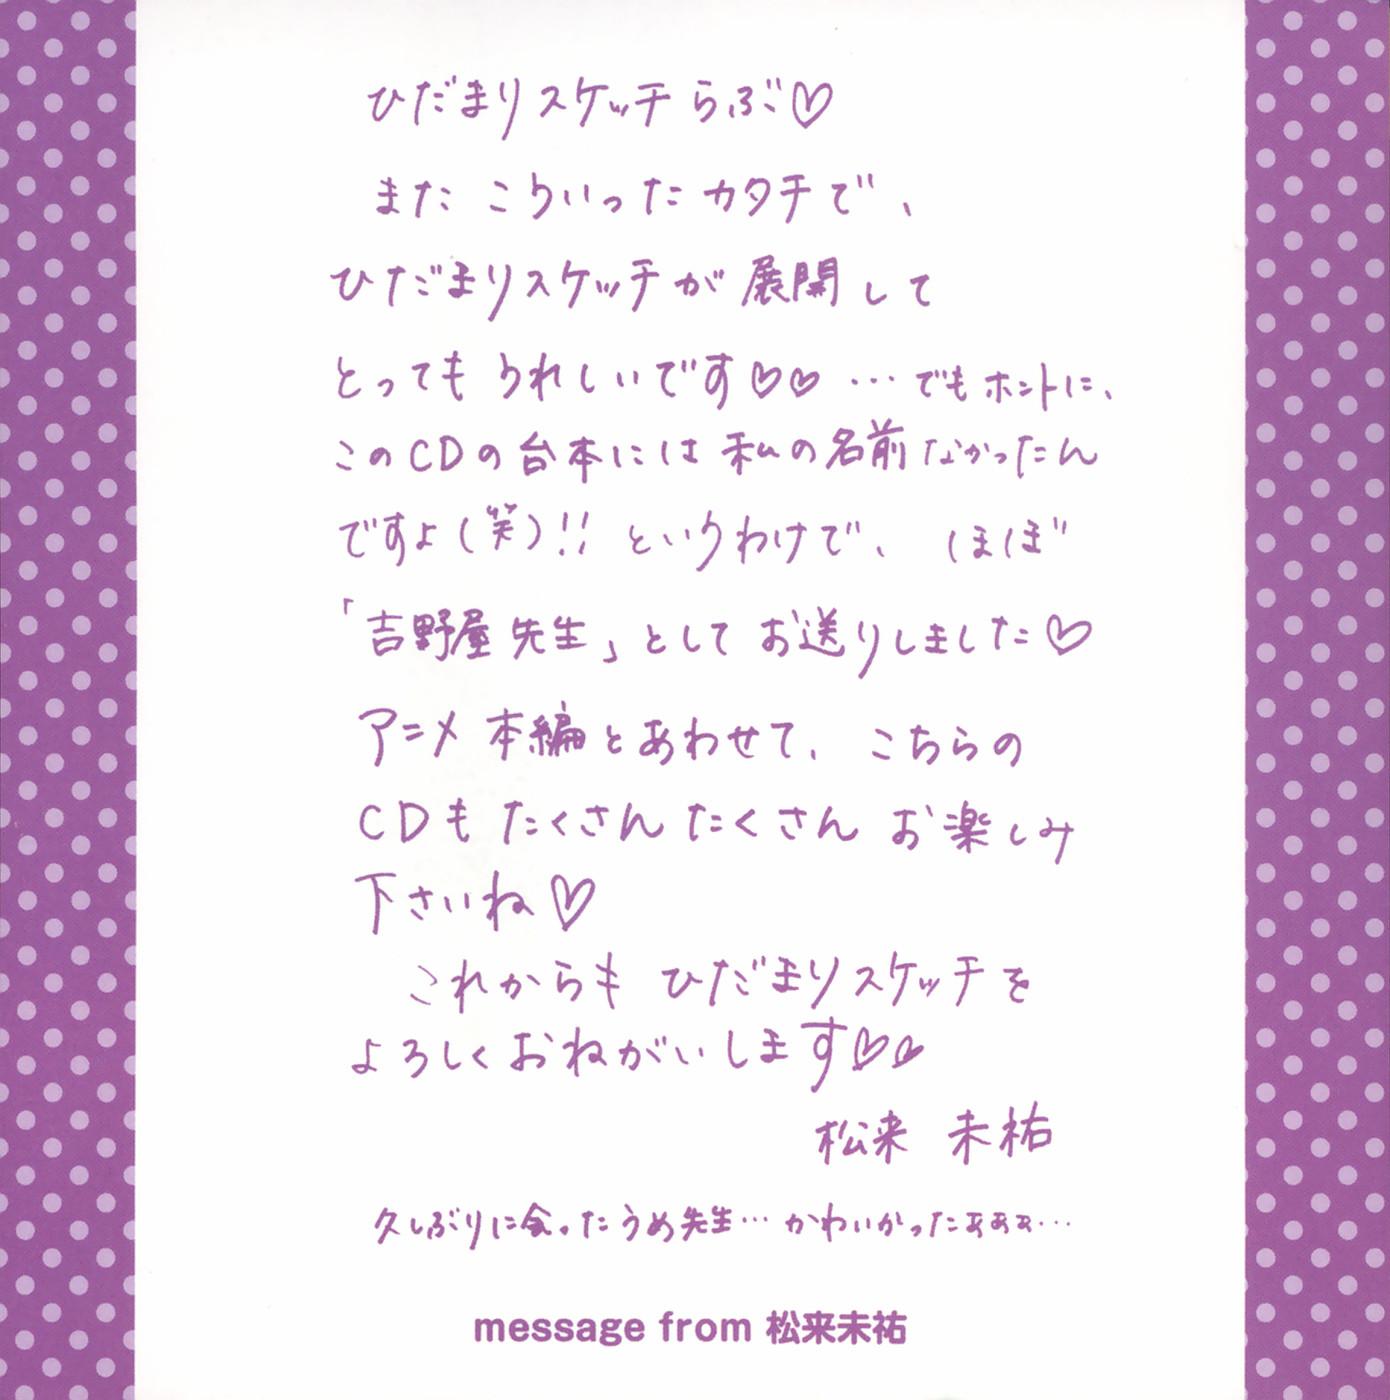 ひだまりスケッチらぶ♡
また こういった カタチで、
ひだまりスケッチが 展開して
とっても うれしいです♡♡ … でも ホントに、
このCDの台本には 私の名前 なかったん
ですよ(笑)!! というわけで、 ほぼ
「吉野屋 先生」として お送りしました♡
アニメ 本編とあわせて、 こちらの
CDも たくさん たくさん お楽しみ
下さいね♡
これからも ひだまりスケッチを
よろしく おねがいします♡♡
松来 未祐
久しぶりに会ったうめ先生… かわいかったぁぁぁ…
message from 松来未祐